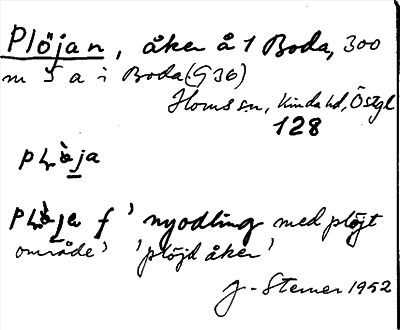 Plöjan, åker å 1 Boda, 300
m S a i Boda (G 36)
Horns sn, Kinda hd, Östgl
128
plöja
plöja f ' nyodling med plöjt
område' 'plöjd åker'
J. Sterner 1952